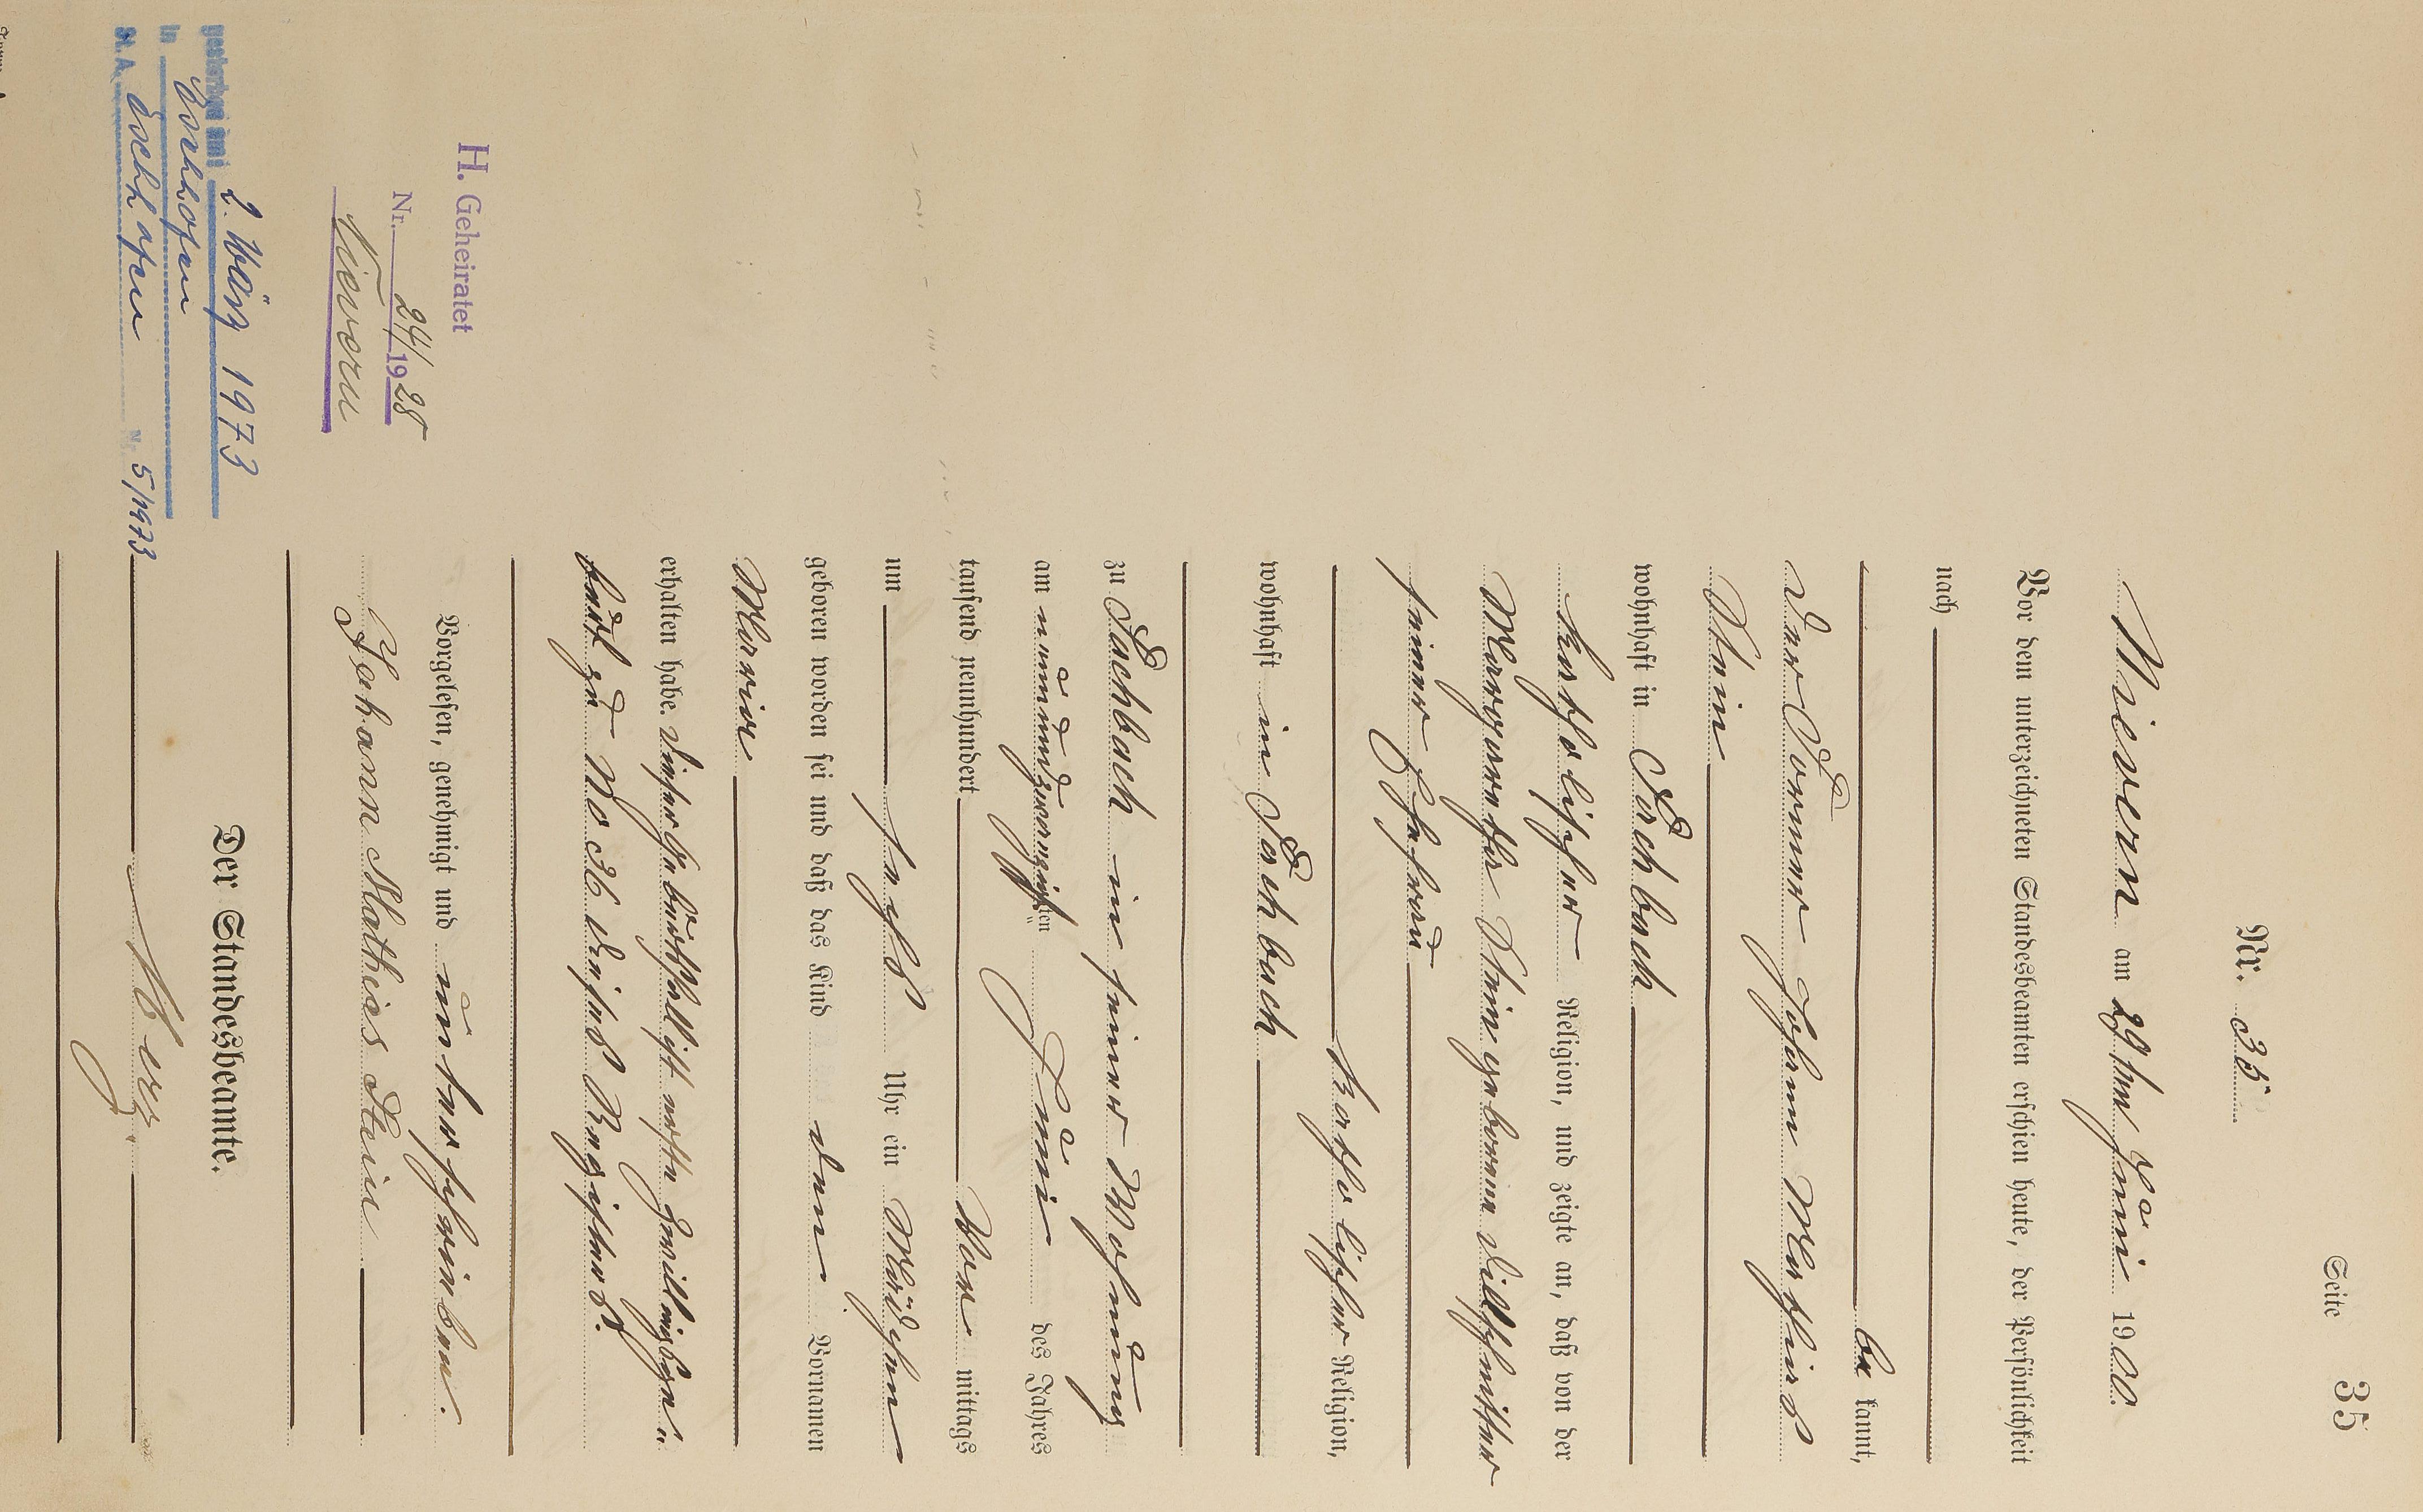 Seite 35
Nr. 35
Nievern am 29ten Juni 1900.
Vor dem unterzeichneten Standesbeamten erschien heute, der Persönlichkeit
nach
be kannt,
der Former Johann Mathias
Stein
wohnhaft in Fachbach
katholischer Religion, und zeigte an, daß von der
Margaretha Stein geborene Dillschnitter
seiner Ehefrau
katholischer Religion,
wohnhaft in Fachbach
zu Fachbach in seiner Wohnung
am neunundzwanzigsten Juni des Jahres
tausend neunhundert Vor mittags
um sechs Uhr ein Mädchen
geboren worden sei und daß das Kind den Vornamen
Maria
erhalten habe. Dieser Geburtsfall ist erste Zwillingsge-
burt zu No 36 dieses Registers.
Vorgelesen, genehmigt und unterschrieben.
Johann Mathias Stein
Der Standesbeamte.
H. Geheiratet
Nr. 24/1928
Nievern
gestorben am: 2. März 1973
in
St. A. Nr. 5/1973